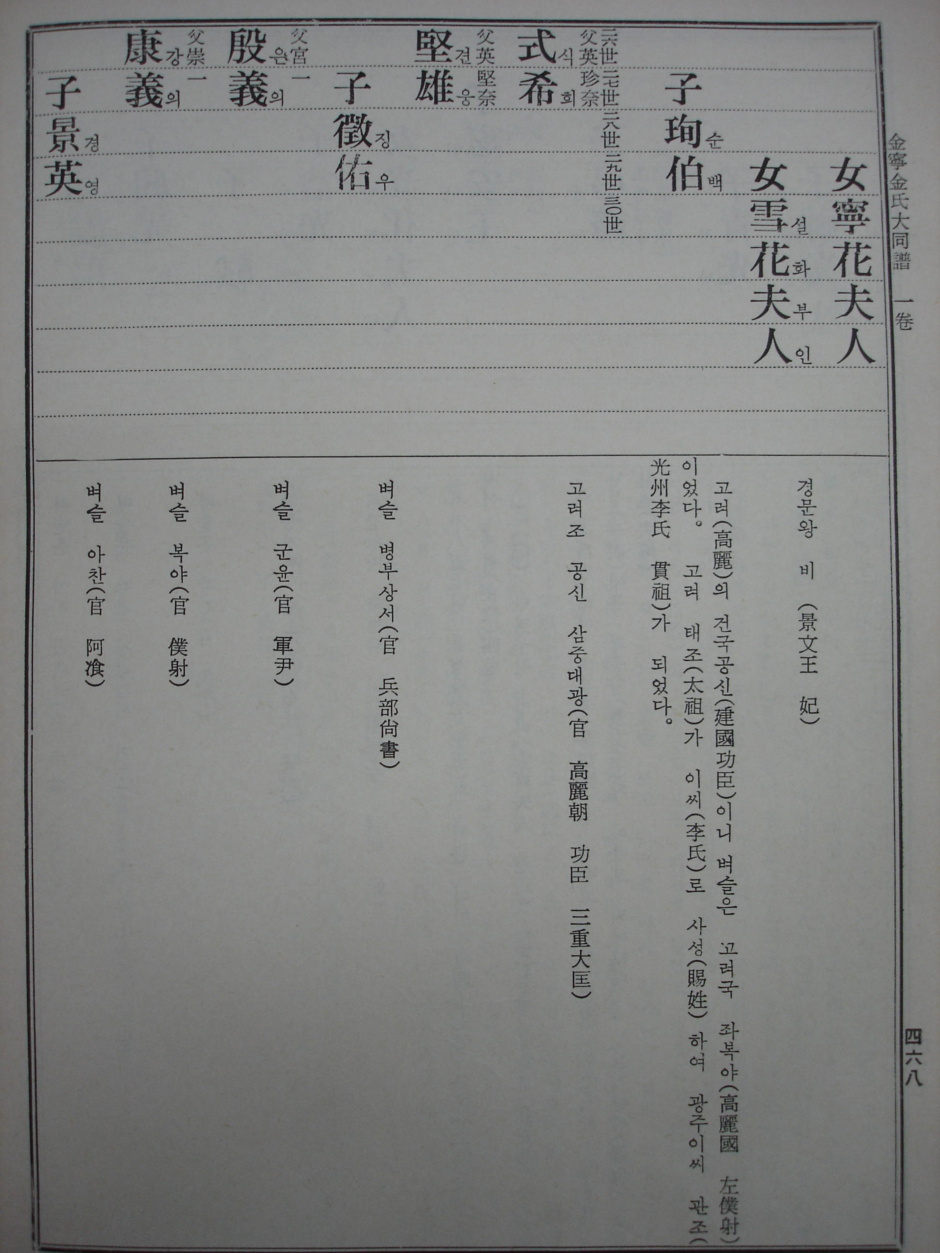 金寧金氏大同譜 一卷
四六八
女寧花夫人
女雪花夫人 설화부인
子珣伯 순백
二六世 二七世 二八世 二九世 三〇世
父英珍奈
式希 식희
父英堅奈
堅雄 견웅
子徵佑 징우
父宮一
殷義 은의
父崇一
康義 강의
子景英 경영
경문왕 비 (景文王 妃)
고려(高麗)의 건국공신(建國功臣)이니 벼슬은 고려국 좌복야(高麗國 左僕射)
이었다. 고려 태조(太祖)가 이씨(李氏)로 사성(賜姓) 하여 광주이씨 관조(
光州李氏 貫祖)가 되었다.
고려조 공신 삼중대광(官 高麗朝 功臣 三重大匡)
벼슬 병부상서(官 兵部尙書)
벼슬 군윤(官 軍尹)
벼슬 복야(官 僕射)
벼슬 아찬(官 阿飡)